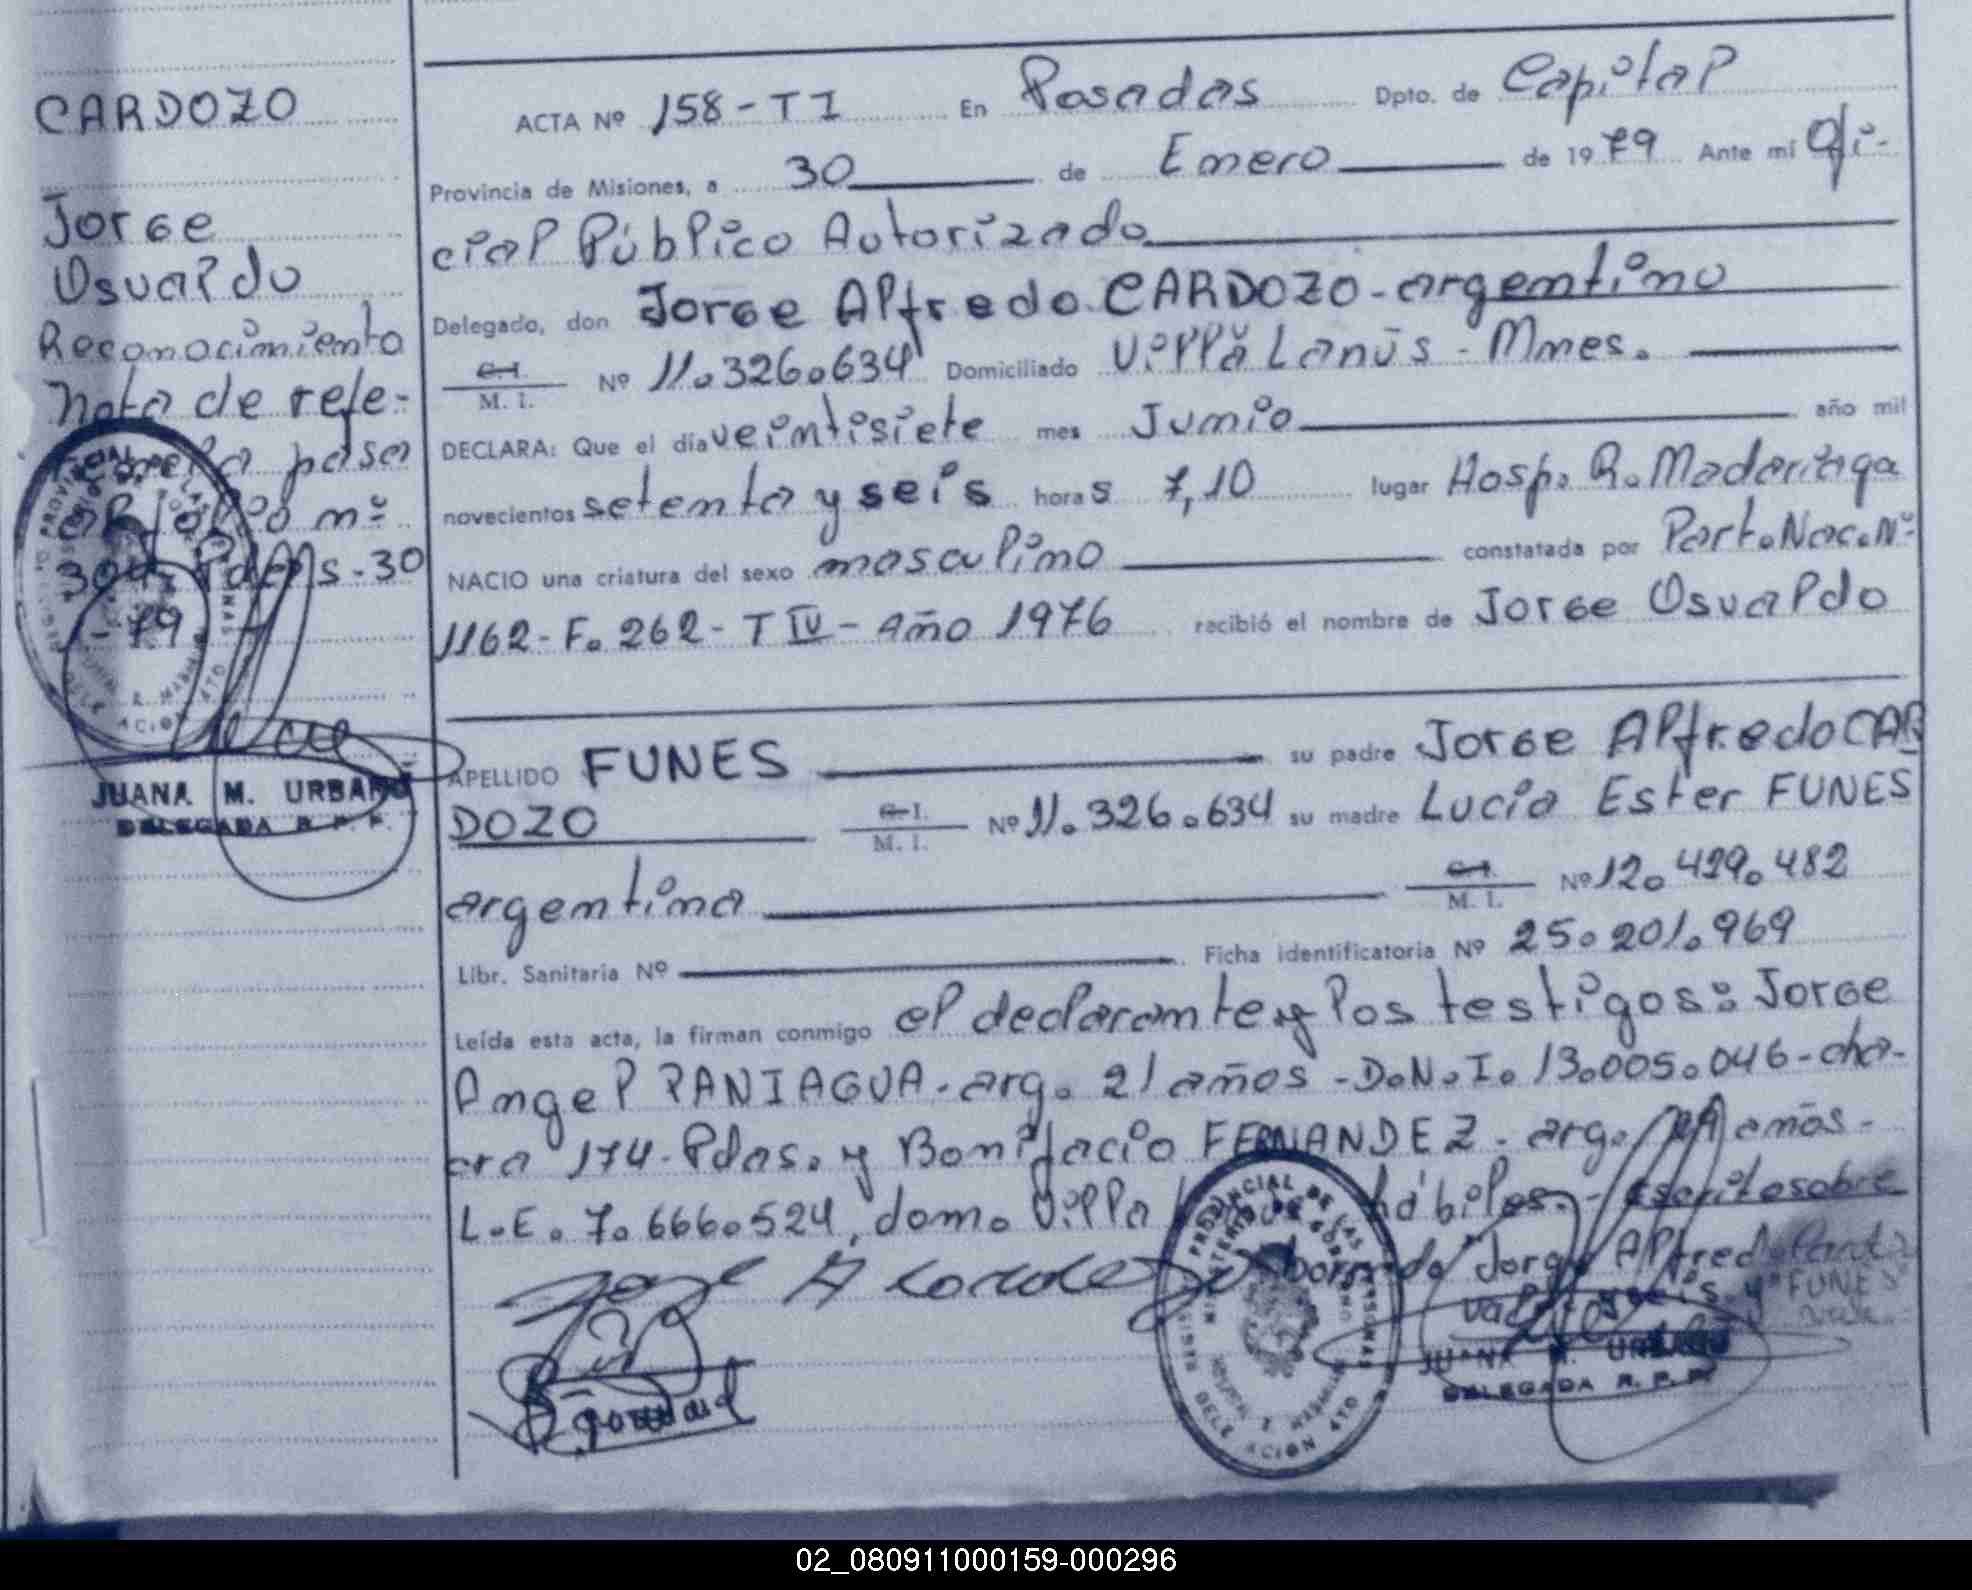 CARDOZO
Jorge
Osvaldo
Reconocimiento
nota de refe-
pasa
nº
304 Pdas-30
-79
JUANA M. URBANO
DELEGADA R. P. P.
ACTA Nº 158-T I En Posadas Dpto. de Capital
Provincia de Misiones, a 30 de Enero de 1979 Ante mi Ofi-
cial Público Autorizado
Delegado, don Jorge Alfredo CARDOZO-argentino
C.I. M. I. Nº 11.326.634 Domiciliado Villa Lanús - Mnes.
DECLARA: Que el día veintisiete mes Junio año mil
novecientos setenta y seis horas 7,10 lugar Hosp. R. Madariaga
NACIO una criatura del sexo masculino constatada por Part. Nac. Nº
1162-F. 262-T IV-Año 1976 recibió el nombre de Jorge Osvaldo
APELLIDO FUNES su padre Jorge Alfredo CAR
DOZO C.I. M. I. Nº 11.326.634 su madre Lucia Ester FUNES
argentina C.I. M. I. Nº 12.419.482
Libr. Sanitaria Nº Ficha identificatoria Nº 25.201.969
Leída esta acta, la firman conmigo el declarante y los testigos: Jorge
Angel PANIAGUA-arg. 21 años-D.N.I. 13.005.046-cha-
cra 174-Pdas. y Bonifacio FERNANDEZ-arg. años-
L.E. 7.666.524, dom. Villa hábiles.- Escrito sobre
borrado Jorge Alfredo Cardo
vale seis y "FUNES"
vale.
Jorge A Cardozo
REGISTRO PROVINCIAL DE LAS PERSONAS
MINISTERIO DE GOBIERNO
HOSPITAL R. MADARIAGA
DELEGACION 4TO
JUANA M. URBANO
DELEGADA R. P. P.
02_080911000159-000296